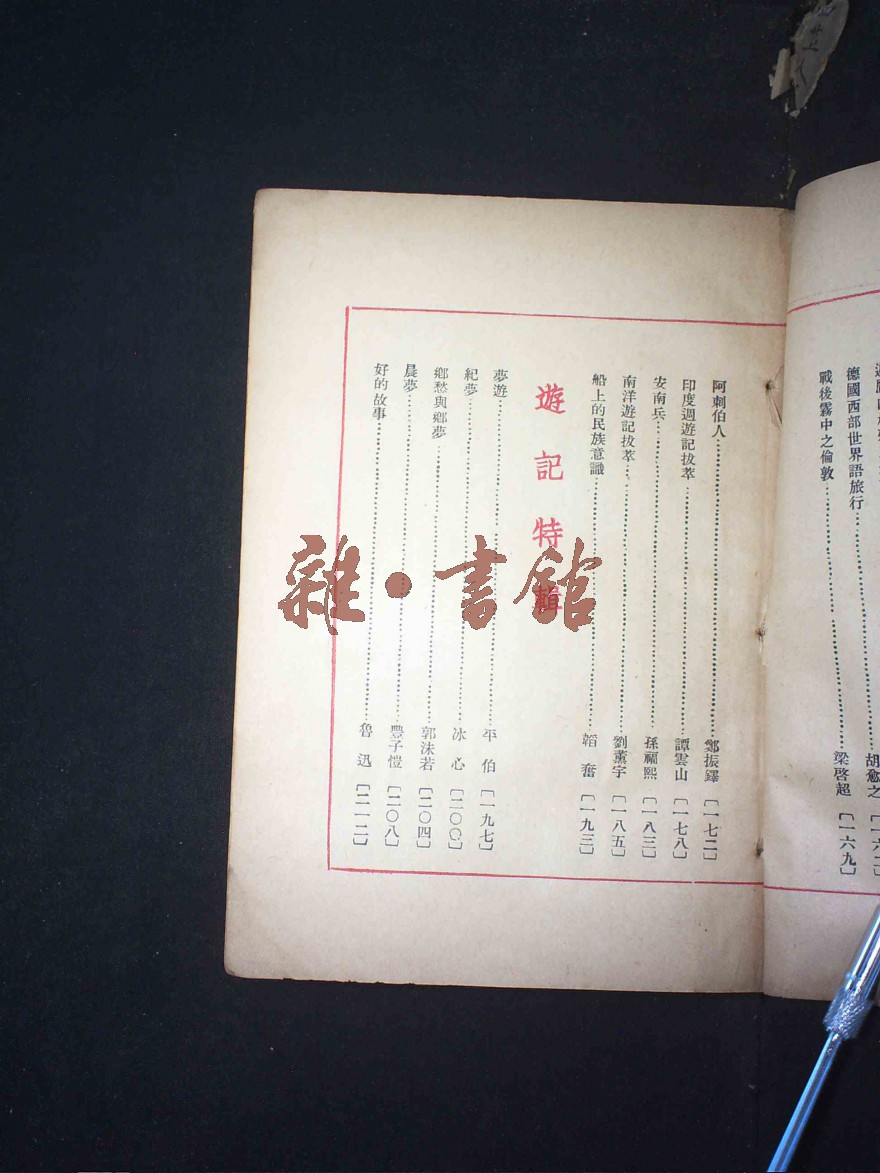 德國西部世界語旅行
胡愈之
戰後霧中之倫敦
梁啓超
[一六九]
阿刺伯人
鄭振鐸
[一七二]
印度週遊記拔萃
譚雲山
[一七八]
安南兵
孫福熙
[一八三]
南洋遊記拔萃
劉薰宇
[一八五]
船上的民族意識
韜奮
[一九三]
遊記特輯
夢遊
平伯
[一九七]
紀夢
冰心
[二〇〇]
鄉愁與鄉夢
郭沫若
[二〇四]
晨夢
豐子愷
[二〇八]
好的故事
魯迅
[二一二]
雜·書館